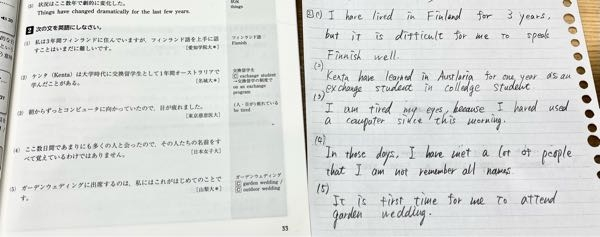 (5) 状況はここ数年で劇的に変化した。
Things have changed dramatically for the last few years.
2 次の文を英語にしなさい。
(1) 私は3年間フィンランドに住んでいますが、フィンランド語を上手に話
すことはいまだに難しいです。
[愛知学院大*]
フィンランド語
Finnish
(2) ケンタ (Kenta) は大学時代に交換留学生として1年間オーストラリアで
学んだことがある。
[名城大*]
交換留学生
C exchange student
→交換留学の制度で
on an exchange
program
(3) 朝からずっとコンピュータに向かっていたので、目が疲れました。
[東京慈恵医大]
(人・目が) 疲れている
be tired
(4) ここ数日間であまりにも多くの人と会ったので、その人たちの名前をす
べて覚えているわけではありません。
[日本女子大]
(5) ガーデンウェディングに出席するのは、私にはこれがはじめてのことで
す。
[山梨大*]
ガーデンウェディング
C garden wedding /
C outdoor wedding
33
2 (1) I have lived in Finland for 3 years,
but it is difficult for me to speak
Finnish well.
(2)
Kenta have learned in Austlaria for one year as an
exchange student in colledge student.
(3)
I am tired my eyes, because I hared used
a computer since this morning.
(4)
In those days, I have met a lot of people
that I am not remember all names.
(5)
It is first time for me to attend
garden wedding.